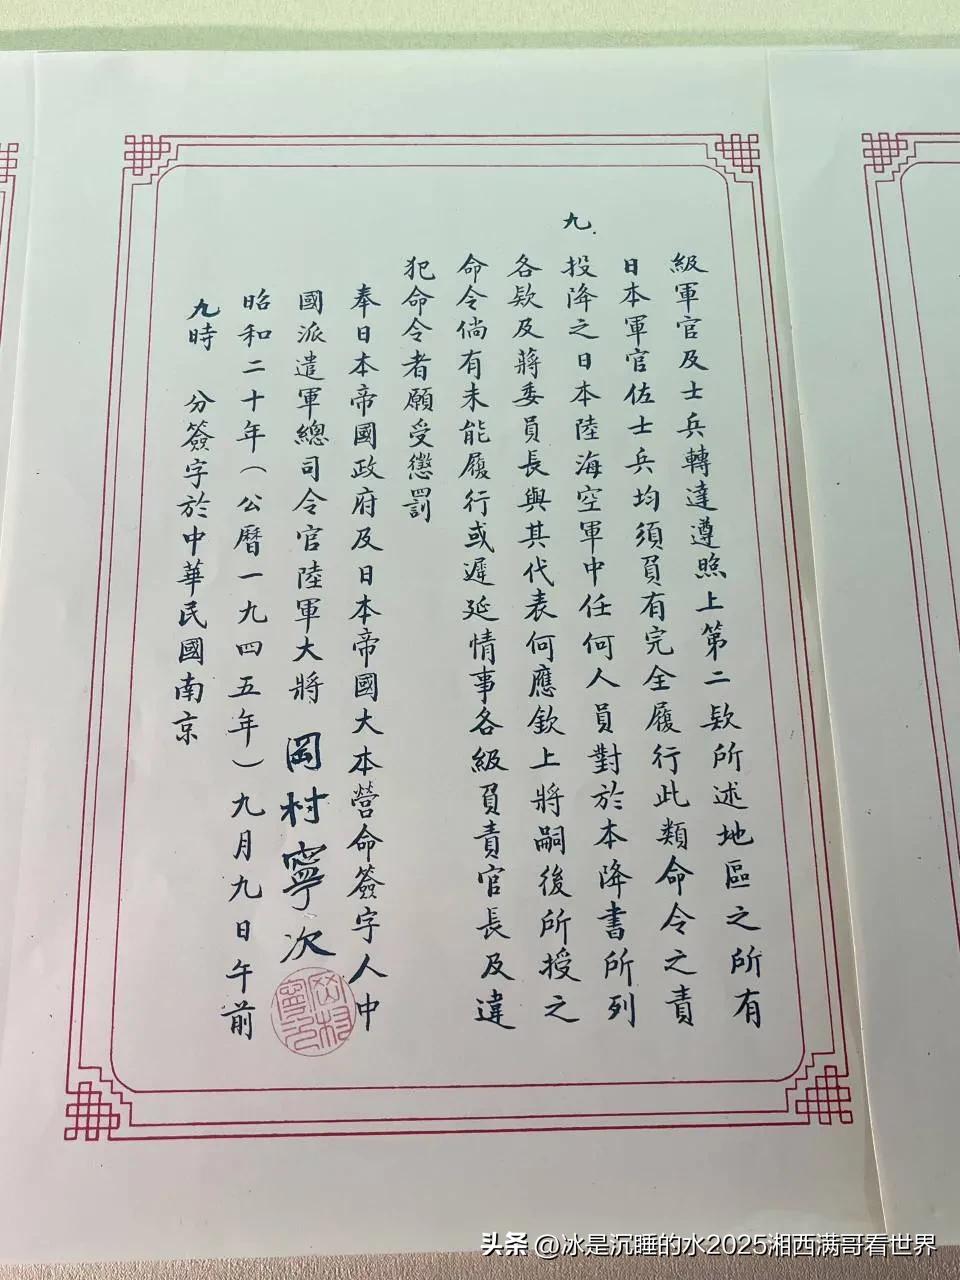 級軍官及士兵轉達遵照上第二欵所述地區之所有
日本軍官佐士兵均須負有完全履行此類命令之責
九.
投降之日本陸海空軍中任何人員對於本降書所列
各欵及蔣委員長與其代表何應欽上將嗣後所授之
命令倘有未能履行或遲延情事各級負責官長及違
犯命令者願受懲罰
奉日本帝國政府及日本帝國大本營命簽字人中
國派遣軍總司令官陸軍大將 岡村寧次
岡村寧次
昭和二十年(公曆一九四五年)九月九日午前
九時 分簽字於中華民國南京
头条 @冰是沉睡的水2025湘西满哥看世界